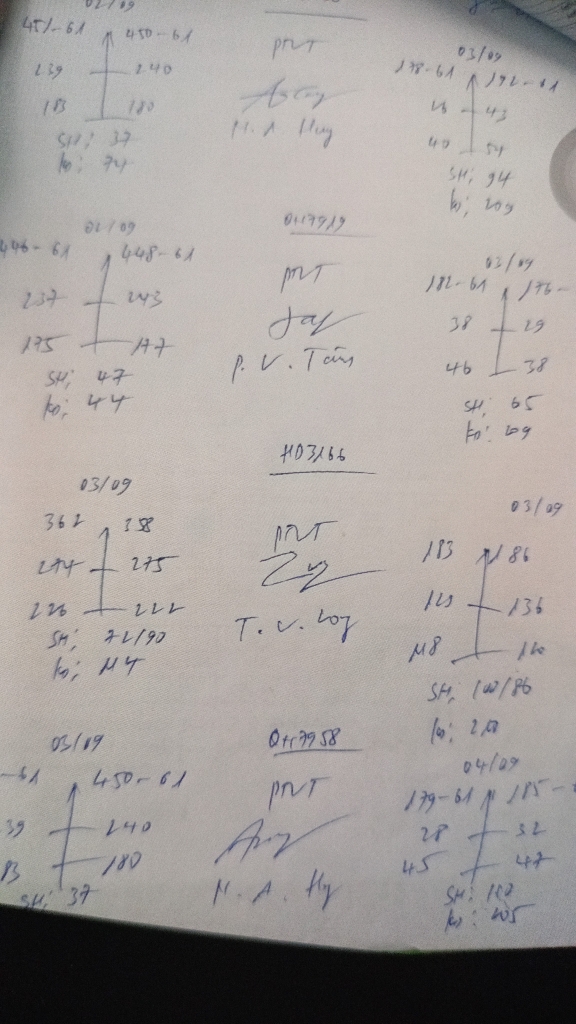 02/09
451-61 450-61
239 240
183 180
SH: 37
ko: 74
PTVT
H. A. Huy
03/09
178-61 192-61
26 43
40 54
SH: 94
ko: 209
02/09
446-61 448-61
237 243
175 177
SH: 47
ko: 44
QH7919
PTVT
P. V. Tân
03/09
182-61 176-
38 29
46 38
SH: 65
ko: 209
03/09
362 358
274 275
226 222
SH: 72/90
ko: 114
HD3166
PTVT
03/09
183 186
136
118 120
SH: 100/86
03/09
-61 450-61
39 240
83 180
SH: 37
QH7958
PTVT
04/09
179-61 185-
28 32
45 47
SH:
ko: 205